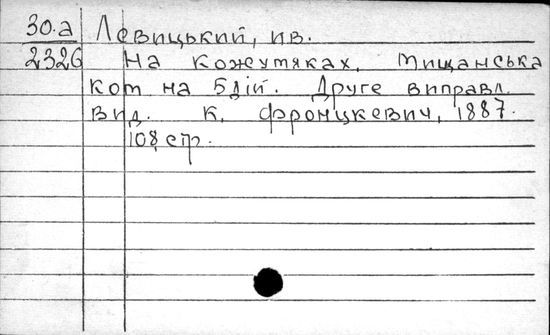 30.а Левицький, ив.
2326 На Кожумяках, Мищанська
ком на 5 дій. Друге виправл.
вид. К, Фронцкевич, 1887.
108 стр.